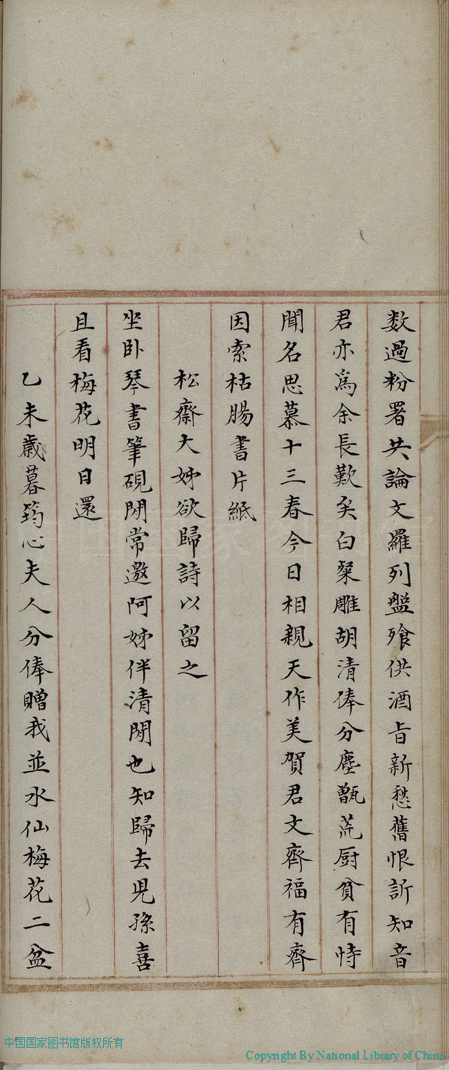 数過粉署共論文羅列盤飱供酒旨新愁舊恨訴知音
君亦為余長歎矣白粲雕胡清俸分塵甑荒厨貧有恃
聞名思慕十三春今日相親天作美賀君文齊福有齊
因索枯腸書片紙
松齋大姊欲歸詩以留之
坐卧琴書筆硯閒常邀阿姊伴清閒也知歸去兒孫喜
且看梅花明日還
乙未歲暮筠心夫人分俸贈我並水仙梅花二盆
中国国家图书馆版权所有
Copyright By National Library of China